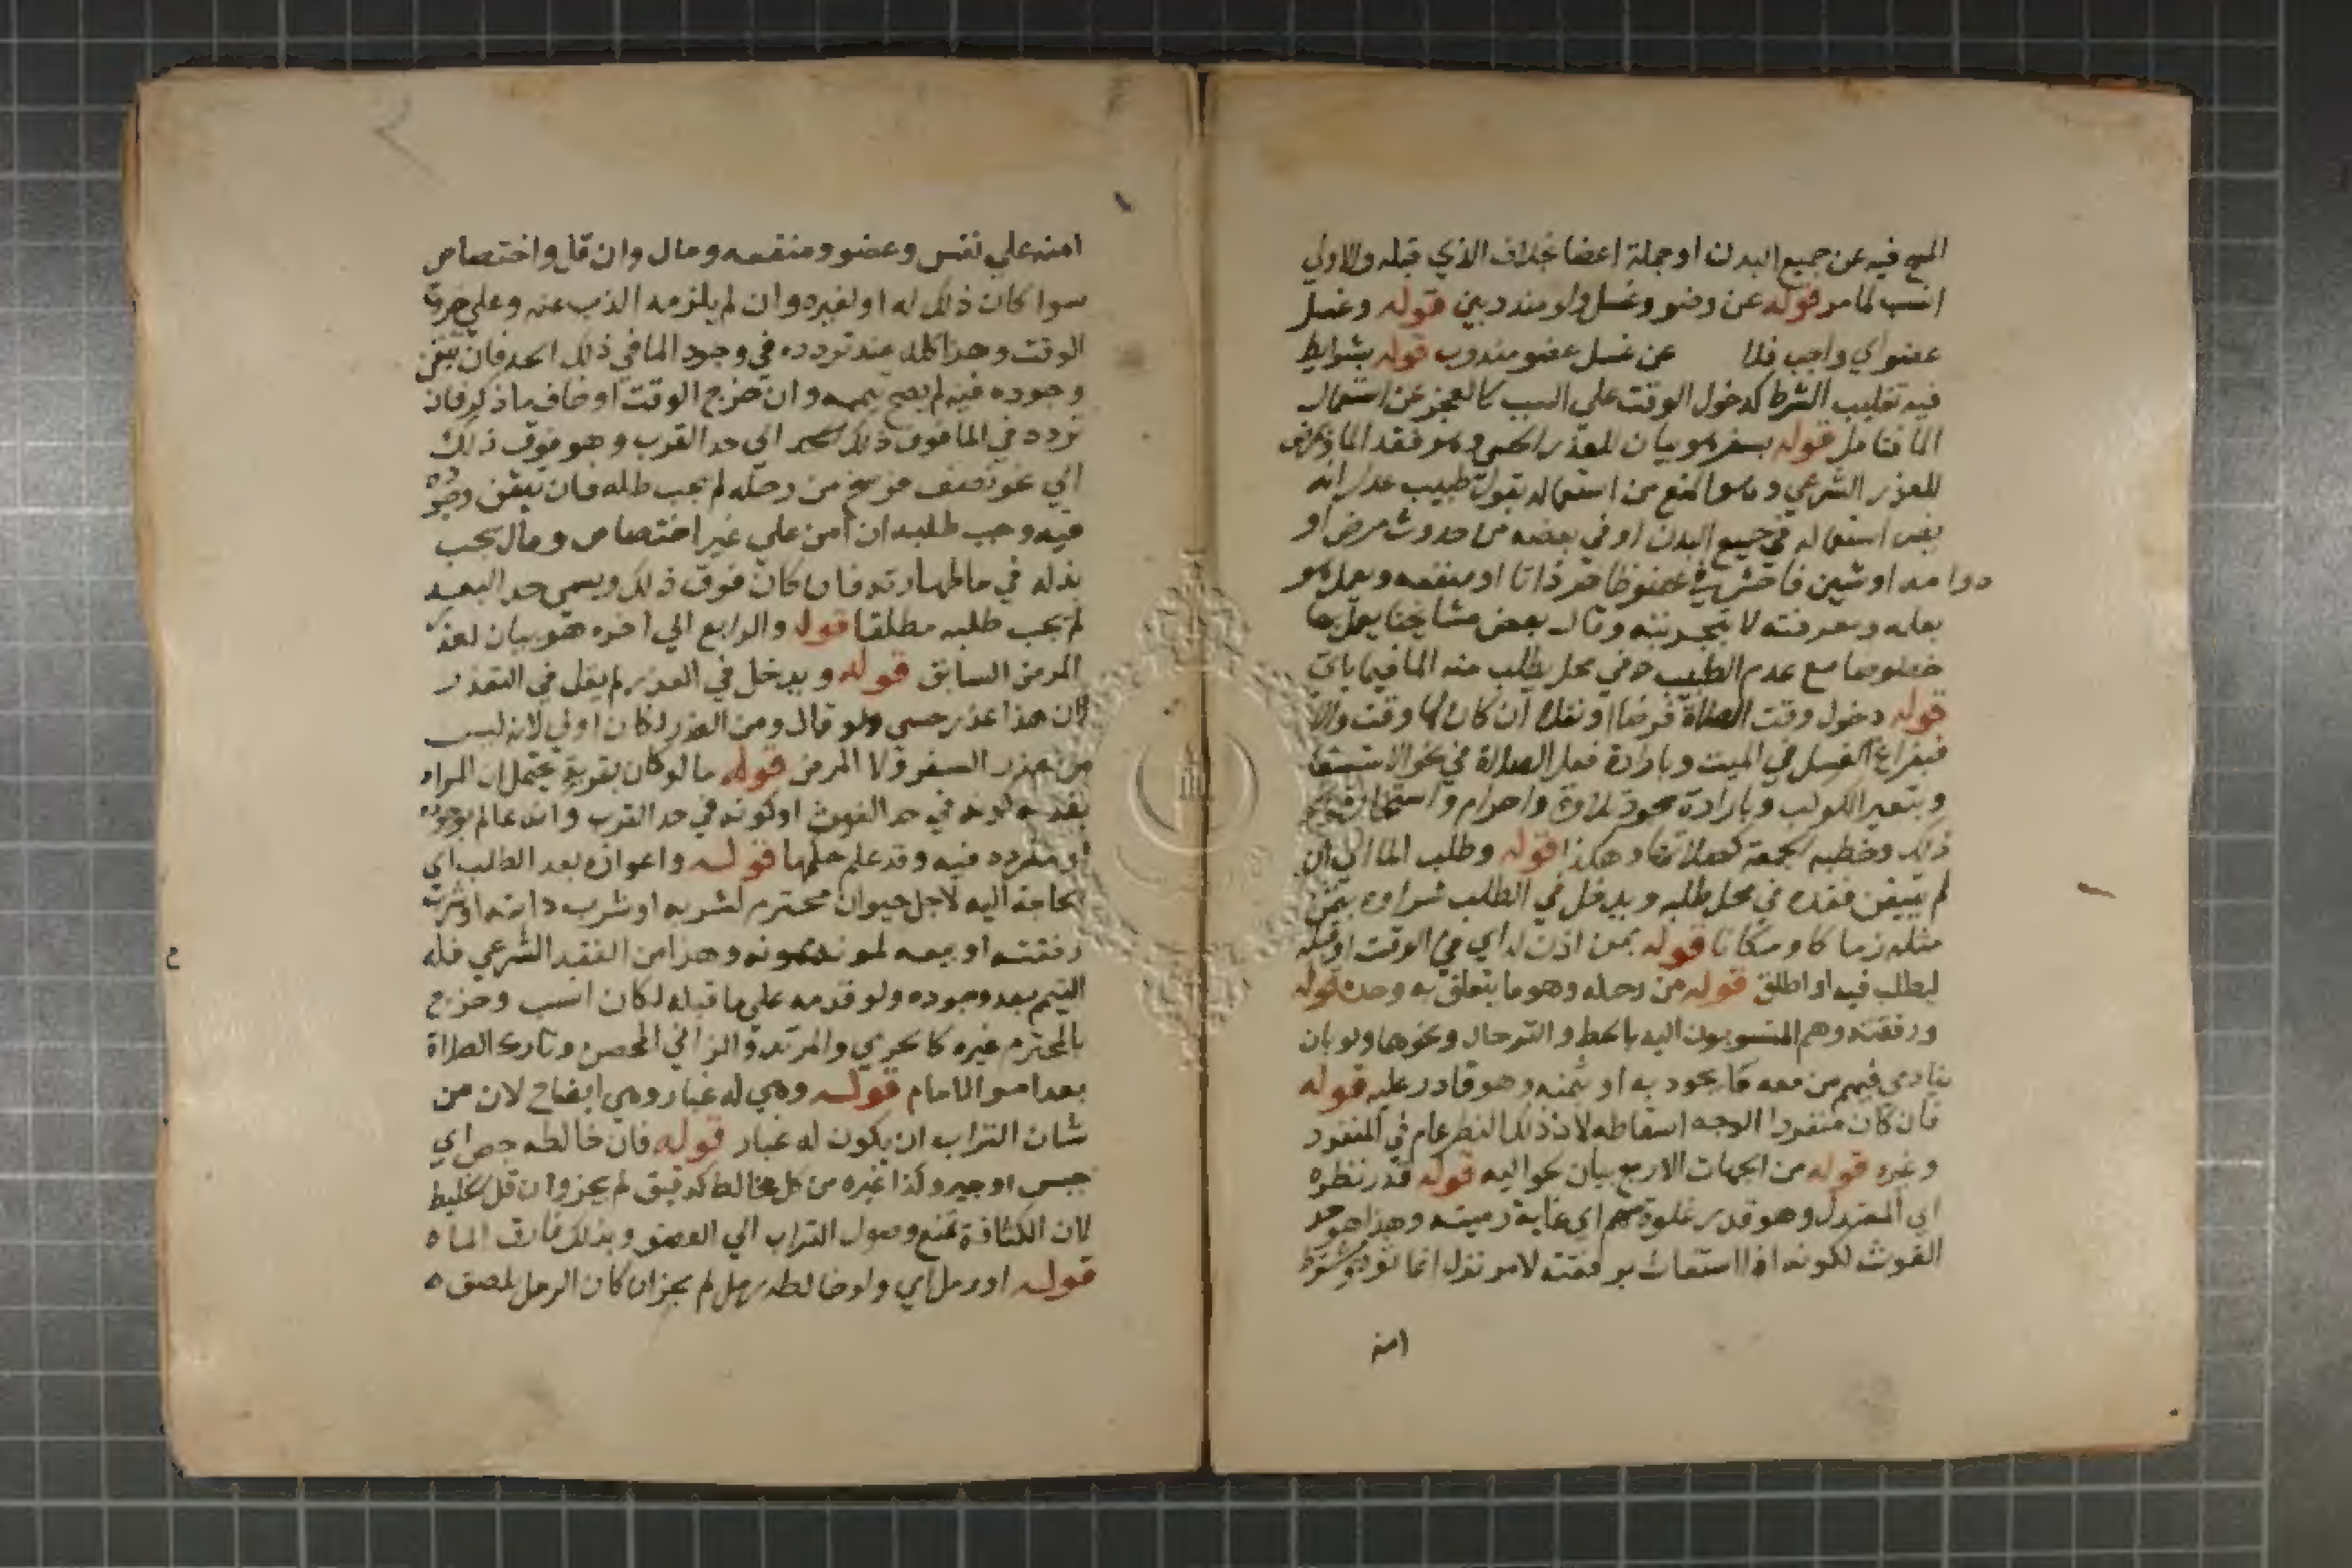 المسح فيه عن جميع البدن او جملة اعضا بخلاف الذي قبله والاولي
انسب لما مر قوله عن وضو وغسل ولو مندوبين قوله وغسل
عضو اي واجب فلا عن غسل عضو مندوب قوله بشرايط
فيه تغليب الشرط كدخول الوقت علي السبب كالعجز عن استعمال
الما فتامل قوله بسفر هو بيان للعذر الحسي وهو فقد الما
للعذر الشرعي وهو المنع من استعماله بقول طبيب عدل انه
يضر استعماله في جميع البدن او في بعضه من حدوث مرض او
دوامه او شين فاحش في عضو ظاهر ذاتا او منفعه ويعمل هو
بعلمه ومعرفته لا بتجربته وقال بعض مشايخنا يعمل بها
خصوصا مع عدم الطبيب في محل يطلب منه الما فيما ياتي
قوله دخول وقت الصلاة فرضا او نفلا ان كان لها وقت والا
فبفراغ الغسل في الميت وبارادة فعل الصلاة في نحو الاستسقا
وبتغير الكوكب وبارادة سجود تلاوة واحرام
ذلك وخطبة جمعة كصلاتها وهكذا قوله وطلب الما اي ان
لم يتيقن فقده في محل طلبه ويدخل في الطلب شراوه بثمن
مثله زمانا ومكانا قوله بمن اذن له اي في الوقت او قبله
ليطلب فيه او اطلق قوله من رحله وهو ما يتعلق به وحده قوله
ورفقته وهم المنسوبون اليه بالحط والترحال ونحوها ولو بان
ينادي فيهم من معه ما يجود به او بثمنه وهو قادر عليه قوله
فان كان منفردا الوجه اسقاطه لان ذلك النظر عام في المنفرد
وغيره قوله من الجهات الاربع بيان لحواليه قوله قدر نظره
اي المعتدل وهو قدر غلوة سهم اي غاية رميته وهذا هو حد
الغوث لكونه اذا استغاث برفقته لامر نزل
امنه
امنه علي نفس وعضو ومنفعه ومال وان قل واختصاص
سوا كان ذلك له او لغيره وان لم يلزمه الذب عنه وعلي خروج
الوقت وهذا كله عند تردده في وجود الما في ذلك الحد فان تيقن
وجوده فيه لم يصح تيممه وان خرج الوقت او خاف ما ذكر فان
تردد في الما فوق ذلك الي حد القرب وهو فوق ذلك
الي نحو نصف فرسخ من رحله لم يجب طلبه فان تيقن وجوده
فيه وجب طلبه ان امن علي غير اختصاص ومال يجب
بذله في ما طهارته فان كان فوق ذلك ويسمي حد البعد
لم يجب طلبه مطلقا قوله والرابع الي اخره هو بيان لعذر
المرض السابق قوله ويدخل في العذر لم يقل في التعذر
لان هذا عذر حسي ولو قال ومن العذر لكان اولي لانه ليس
من عذر السفر ولا المرض قوله ما لو كان بقربه يحتمل ان المراد
بقربه كونه في حد الغوث او كونه في حد القرب وانه عالم بوجوده
او متردد فيه وقد علم حكمها قوله واعوازه بعد الطلب اي
لحاجته اليه لاجل حيوان محترم لشربه او شرب دابته او شرب
رفقته او بيعه لمونة ممونه وهذا من الفقد الشرعي فله
التيمم بعد وجوده ولو قدمه علي ما قبله لكان انسب وخرج
بالمحترم غيره كالحربي والمرتد والزاني المحصن وتارك الصلاة
بعد امر الامام قوله وهي له غبار وهي ايضاح لان من
شان التراب ان يكون له غبار قوله فان خالطه جص اي
جبس او جير وكذا غيره من كل مخالط كدقيق لم يجز وان قل الخليط
لان الكثافة تمنع وصول التراب الي العضو وبذلك فارق الماء
قوله او رمل اي ولو خالطه رمل لم يجز ان كان الرمل يلصق